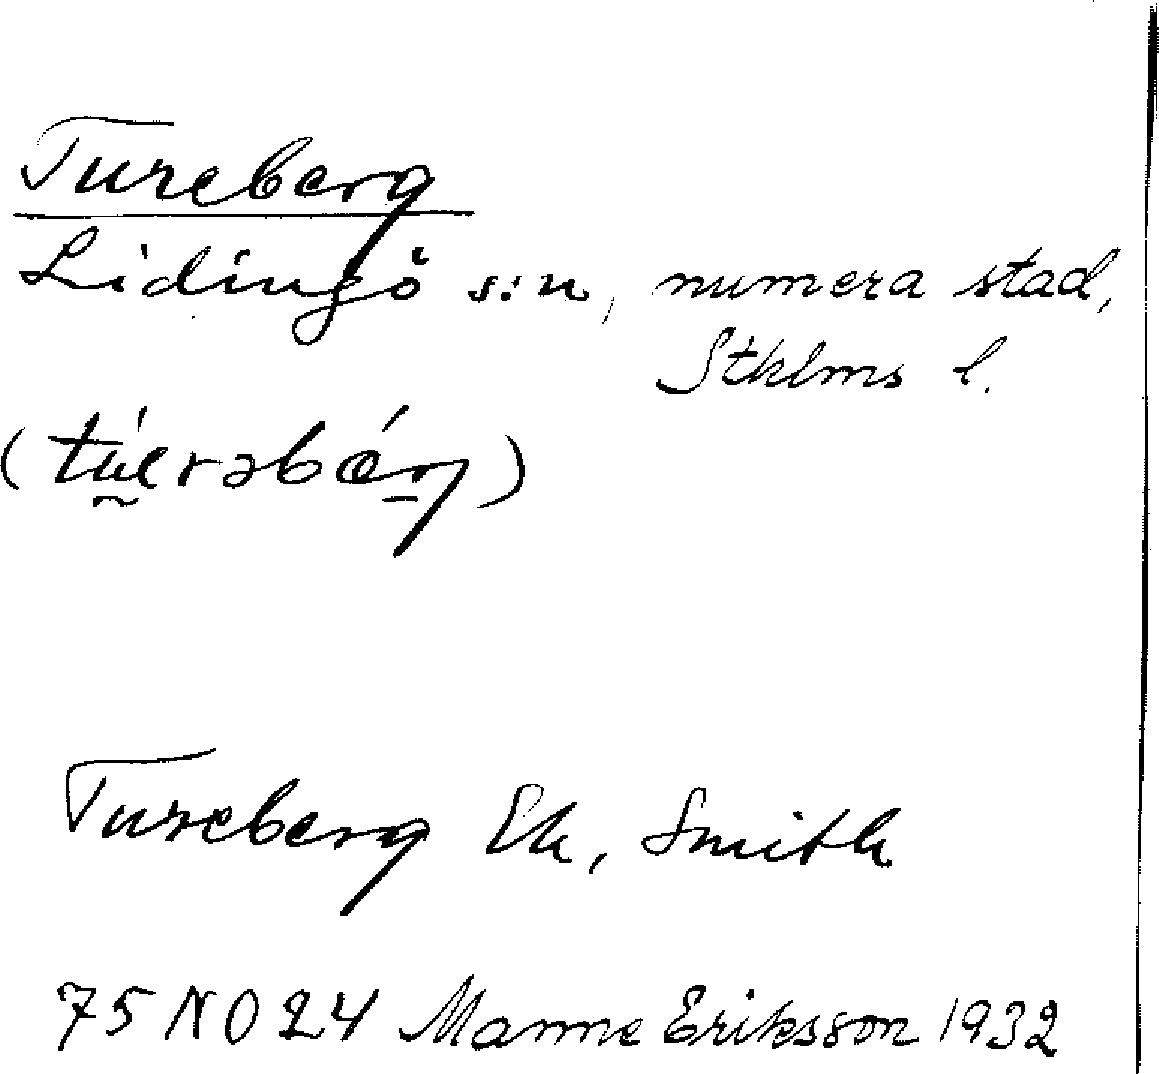 Tureberg
Lidingö s:n, numera stad,
Stklms l.
Tureberg Ek, Smith
75 NO 24 Manne Eriksson 1932